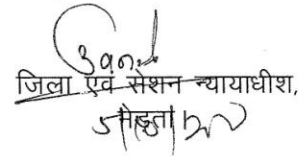 जिला एवं सेशन न्यायाधीश,
मेड़ता